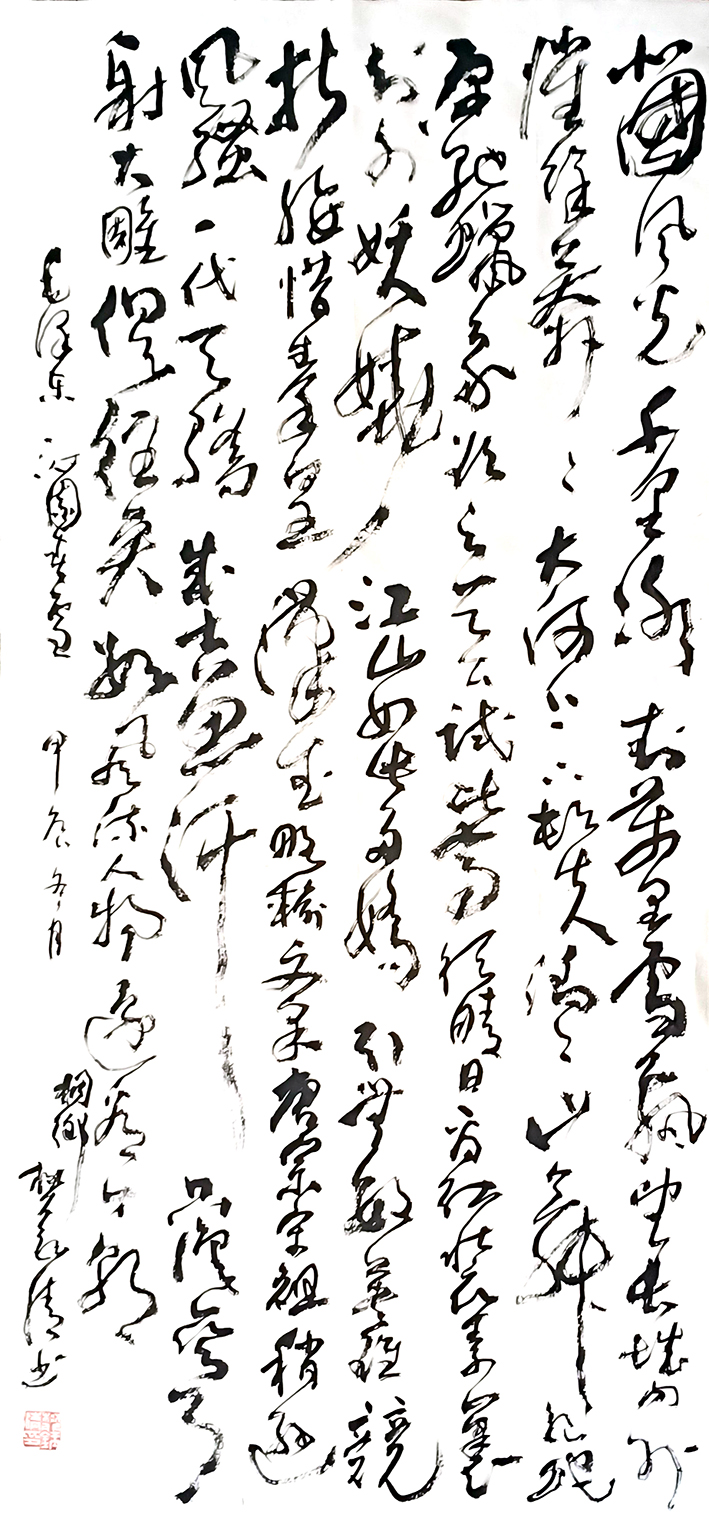 北國风光千里冰封萬里雪飘望长城内外
惟餘莽々大河上下顿失滔々山舞銀蛇
原馳蠟象欲与天公試比高須晴日看红装素裹
分外妖娆江山如此多娇引無數英雄競
折腰惜秦皇漢武略输文采唐宗宋祖稍遜
风骚一代天骄成吉思汗只識彎弓
射大雕俱往矣数风流人物还看今朝
毛泽东沁園春雪 甲辰冬月
桐鄉樊清书